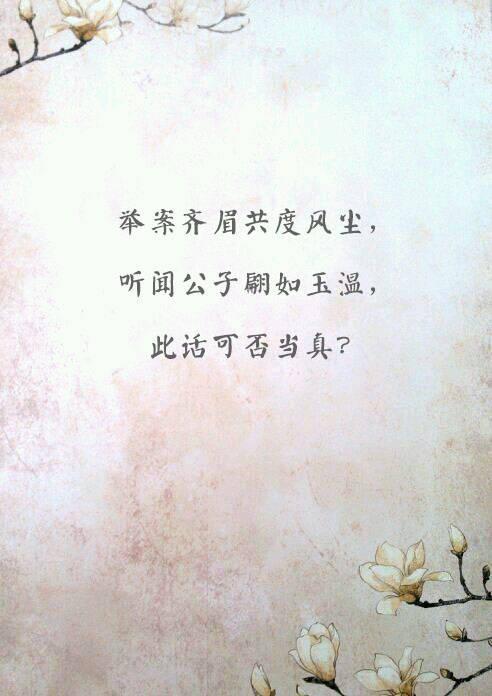 举案齐眉共度风尘，
听闻公子翩如玉温，
此话可否当真?